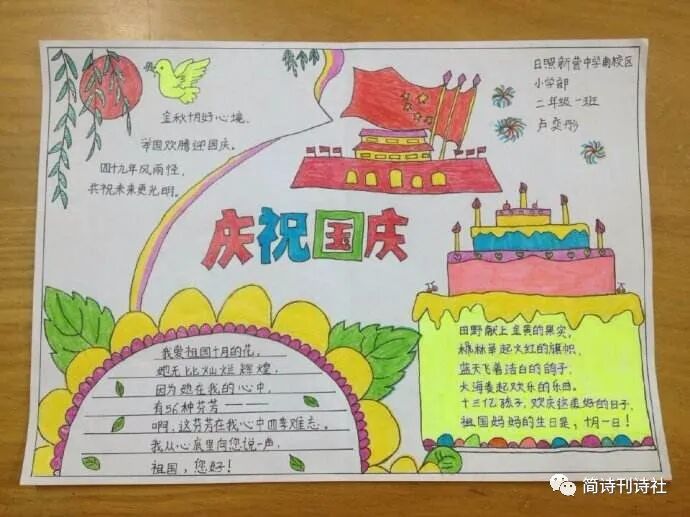 金秋十月好心境,
举国欢腾迎国庆。
四十九年风雨怪,
共祝未来更光明。
日照新营中学南校区
小学部
二年级一班
卢奕彤
庆祝国庆
我爱祖国十月的花,
她无比灿烂辉煌,
因为她在我的心中,
有56种芬芳———
啊,这芬芳在我心中四季难忘。
我从心底里向您说一声,
祖国,您好!
田野献上金黄的果实,
森林举起火红的旗帜,
蓝天飞着洁白的鸽子,
大海奏起欢乐的乐曲。
十三亿孩子,欢庆这美好的日子,
祖国妈妈的生日是,十月一日!
简诗刊诗社